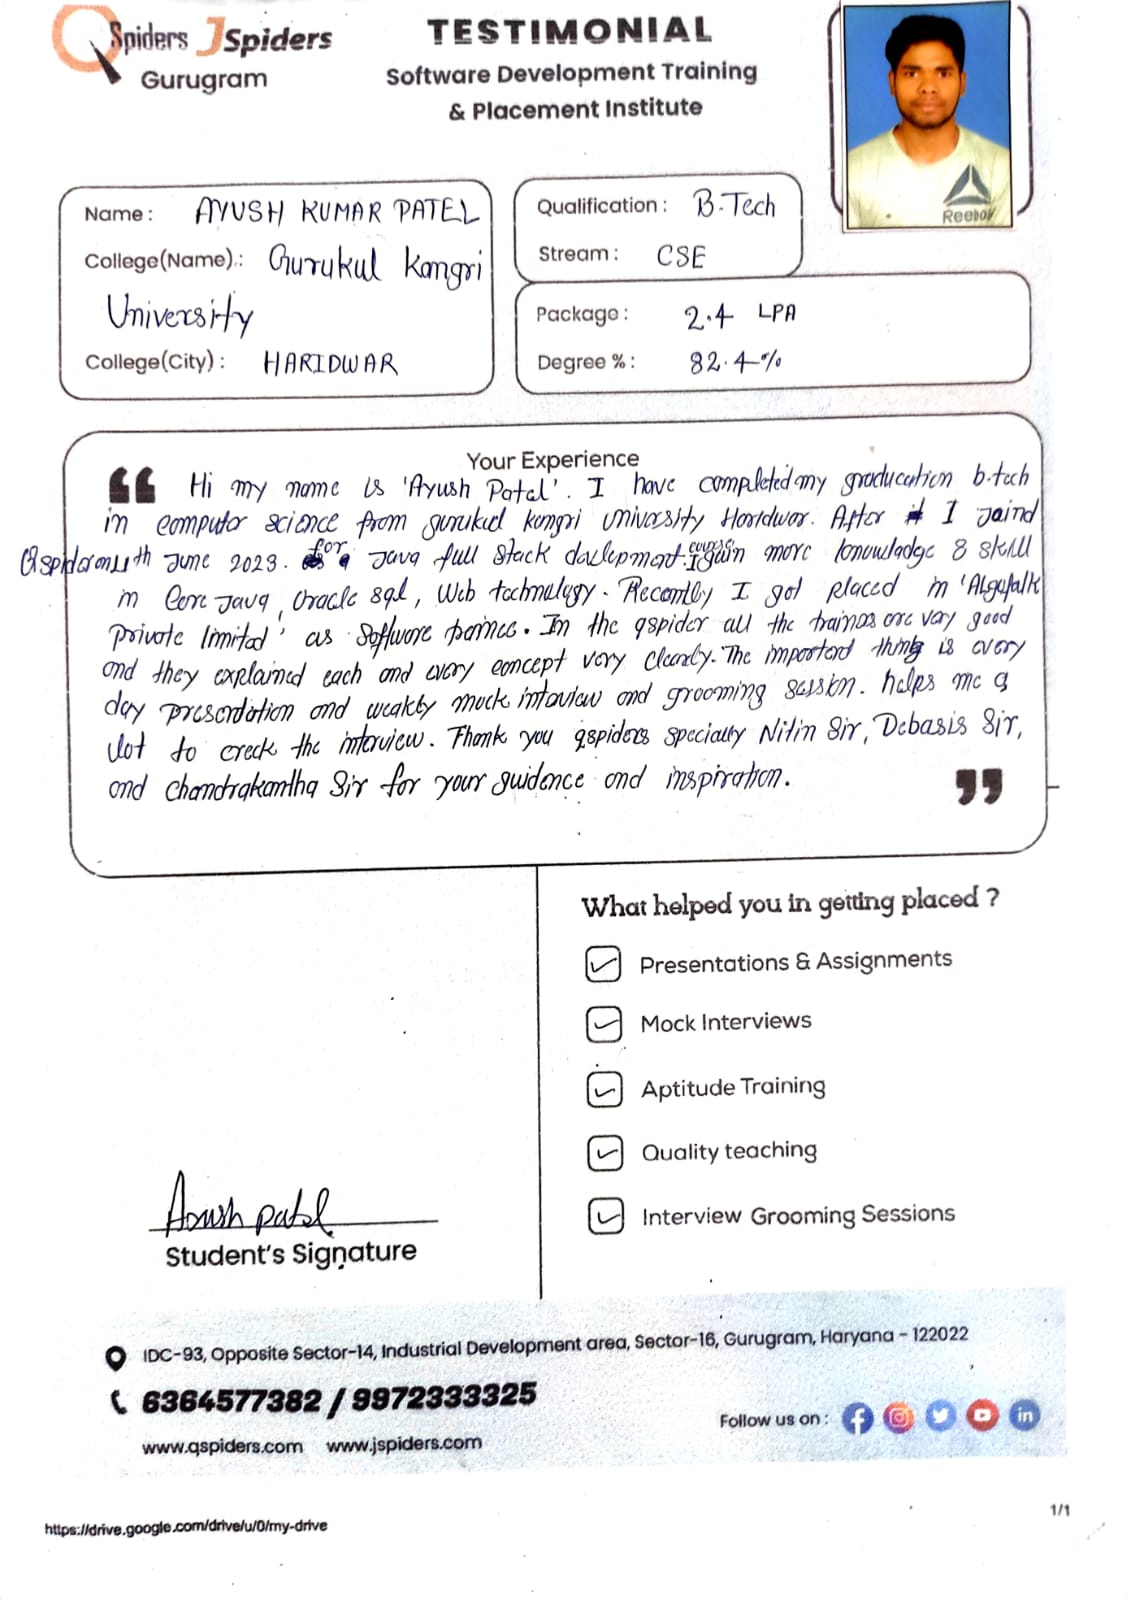 QSpiders JSpiders
Gurugram
TESTIMONIAL
Software Development Training
& Placement Institute
Reebok
Name : AYUSH KUMAR PATEL
College(Name).: Gurukul Kangri
University
College(City) : HARIDWAR
Qualification : B.Tech
Stream : CSE
Package : 2.4 LPA
Degree % : 82.4%
Your Experience
“ Hi my name is 'Ayush Patel'. I have completed my graducation b.tech
in computer science from gurukul kangri university Haridwar. After I Jaind
Qspider on 11th June 2023. for Java full stack devlepment course. I gain more knowladge & skill
in Core Java, Oracle sql, Web technology. Recently I got placed in 'Algofalk
private limited' as Software . In the qspider all the are very good
and they explained each and every concept very clearly. The thing is every
day and weakly mock interview and grooming session. helps me a
lot to creck the interview. Thank you qspiders specially Nitin Sir, Debasis Sir,
and chandrakantha Sir for your guidence and inspiration. ”
What helped you in getting placed ?
Presentations & Assignments
Mock Interviews
Aptitude Training
Quality teaching
Interview Grooming Sessions
Ayush patel
Student's Signature
IDC-93, Opposite Sector-14, Industrial Development area, Sector-16, Gurugram, Haryana - 122022
6364577382 / 9972333325
www.qspiders.com www.jspiders.com
Follow us on : f in
1/1
https://drive.google.com/drive/u/0/my-drive